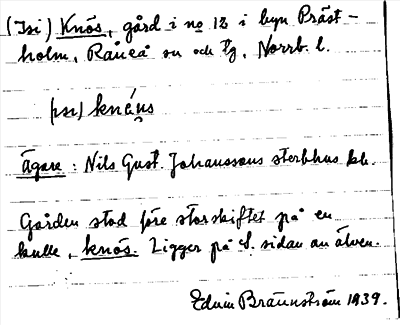 (Isi) Knös, gård i no 12 i byn Präst-
holm, Råneå sn och tg, Norrb. l.
Ägare: Nils Gust. Johanssons sterbhus
Gården stod före storskiftet på en
kulle, knös. Ligger på S. sidan av älven.
Edvin Brännström 1939.